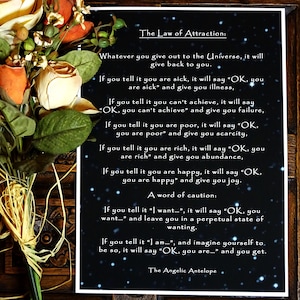 The Law of Attraction:
Whatever you give out to the Universe, it will
give back to you.
If you tell it you are sick, it will say "OK, you
are sick" and give you illness,
If you tell it you can't achieve, it will say
"OK, you can't achieve" and give you failure,
If you tell it you are poor, it will say "OK,
you are poor" and give you scarcity,
If you tell it you are rich, it will say "OK, you
are rich" and give you abundance,
If you tell it you are happy, it will say "OK,
you are happy" and give you joy.
A word of caution:
If you tell it "I want...", it will say "OK, you
want..." and leave you in a perpetual state of
wanting.
If you tell it "I am...", and imagine yourself to
be so, it will say "OK, you are..." and you get.
The Angelic Antelope